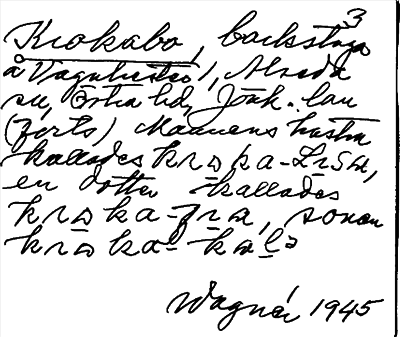 3
Krokabo, backstuga
å Vagnhester), Alseda
sn, Östra hd, Jönk. län
(forts) Mannens hustru
kallades kroka-Lisa,
en dotter kallades
kroka-fia, sonen
kroka-kal
Wagnér 1945